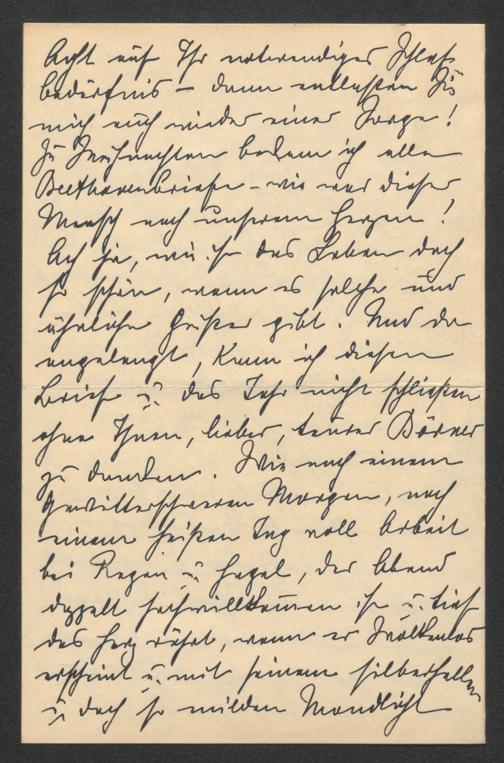 Acht auf Ihr notwendiges Schlaf-
bedürfnis – dann entlasten Sie
mich auch wieder einer Sorge!
Zu Weihnachten bekam ich alle
Beethovenbriefe – wie war dieser
Mensch nach unserem Herzen!
Ach ja, wie ist das Leben doch
so schön, wenn es solche und
ähnliche Geister gibt. Und da
angelangt, kann ich diesen
Brief u. das Jahr nicht schließen
ohne Ihnen, lieber, teurer Börner
zu danken. Wie nach einem
Gewitterschweren Morgen, nach
einem heißen Tag voll Arbeit
bei Regen u. Hagel, der Abend
doppelt hochwillkommen ist u. tief
das Herz rührt, wenn er Wolkenlos
erscheint u. mit seinem silberhellen
u. doch so milden Mondlicht